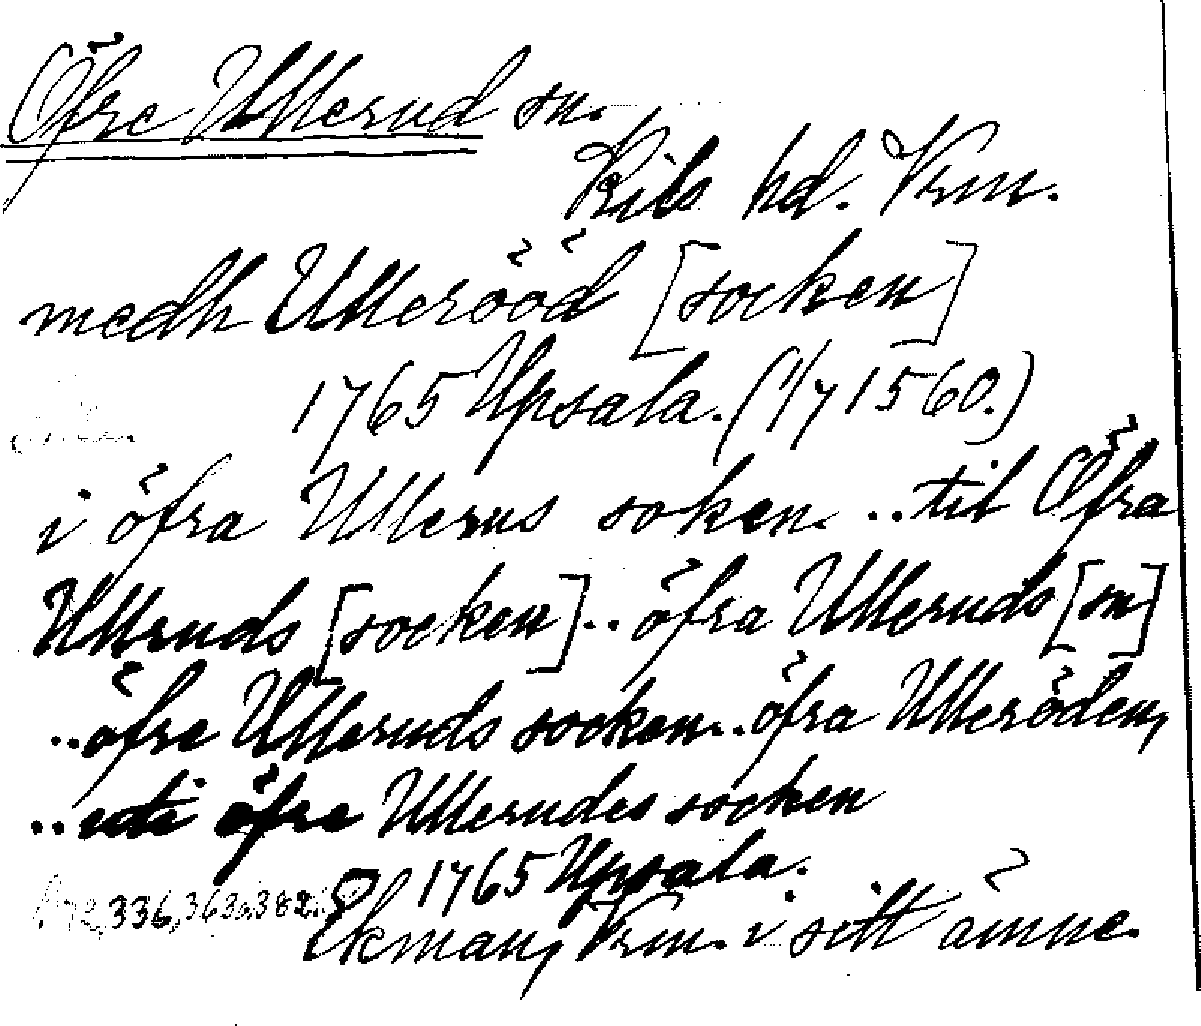 Öfre Ullerud sn.
Kils hd. Vrm.
medh Ullerööd [socken]
1765 Upsala. (1/7 1560.)
i öfra Ullerus soken. ..til Öfra
Ullruds [socken].. öfra Ulleruds [sn]
..öfre Ulleruds socken...öfra Elleröden,
..uti öfre Ullerudes socken
1765 Upsala.
336, 363, 382.
Ekman, Vrm. i sitt ämne.